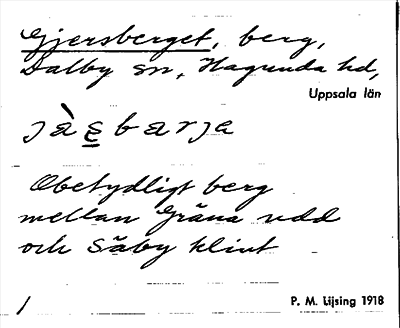 Gjersberget, berg,
Dalby sn, Hagunda hd,
Uppsala län
jàs̲barja
Obetydligt berg
mellan Gräna udd
och Säby klint
P. M. Lijsing 1918